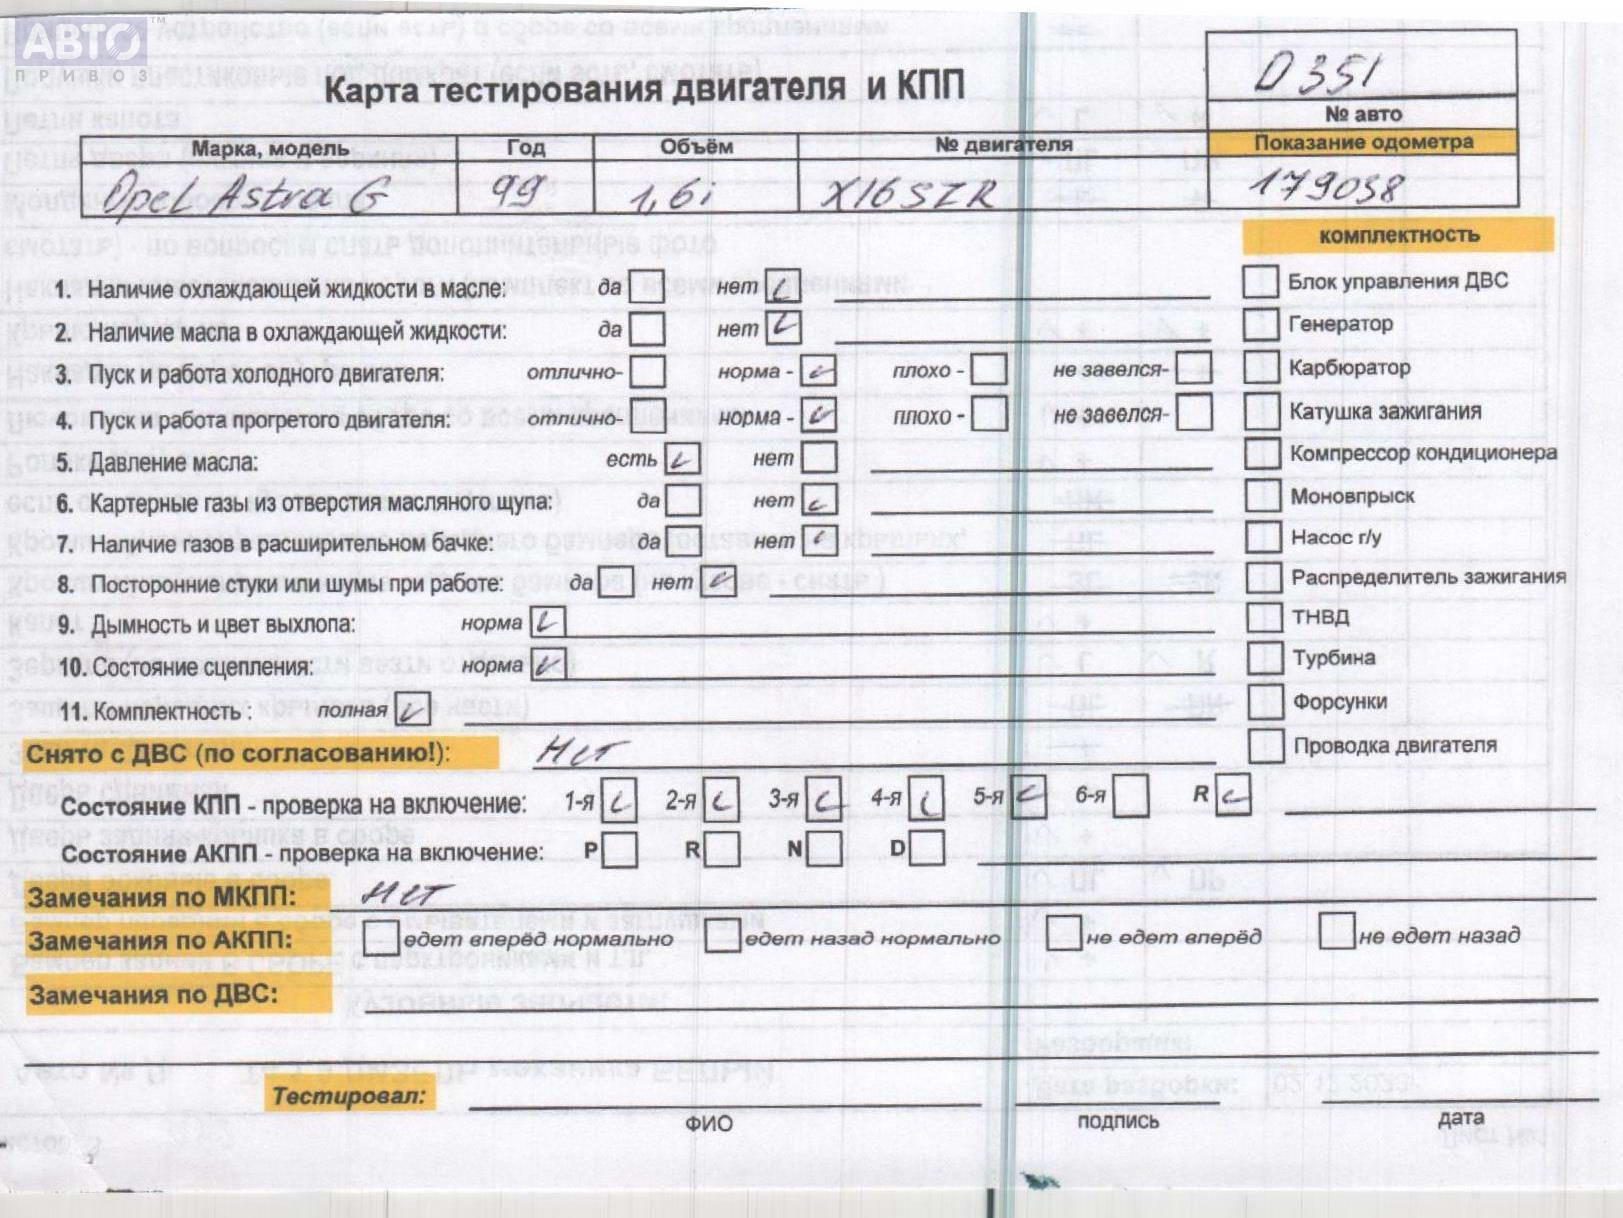 АВТО™
ПРИВОЗ
Карта тестирования двигателя и КПП
D351
№ авто
Марка, модель Год Объём № двигателя Показание одометра
Opel Astra G 99 1,6i X16SZR 179038
комплектность
1. Наличие охлаждающей жидкости в масле: да нет
2. Наличие масла в охлаждающей жидкости: да нет
3. Пуск и работа холодного двигателя: отлично- норма - плохо - не завелся-
4. Пуск и работа прогретого двигателя: отлично- норма - плохо - не завелся-
5. Давление масла: есть нет
6. Картерные газы из отверстия масляного щупа: да нет
7. Наличие газов в расширительном бачке: да нет
8. Посторонние стуки или шумы при работе: да нет
9. Дымность и цвет выхлопа: норма
10. Состояние сцепления: норма
11. Комплектность : полная
Блок управления ДВС
Генератор
Карбюратор
Катушка зажигания
Компрессор кондиционера
Моновпрыск
Насос г/у
Распределитель зажигания
ТНВД
Турбина
Форсунки
Проводка двигателя
Снято с ДВС (по согласованию!): Нет
Состояние КПП - проверка на включение: 1-я 2-я 3-я 4-я 5-я 6-я R
Состояние АКПП - проверка на включение: P R N D
Замечания по МКПП: Нет
Замечания по АКПП: едет вперёд нормально едет назад нормально не едет вперёд не едет назад
Замечания по ДВС:
Тестировал:
ФИО подпись дата